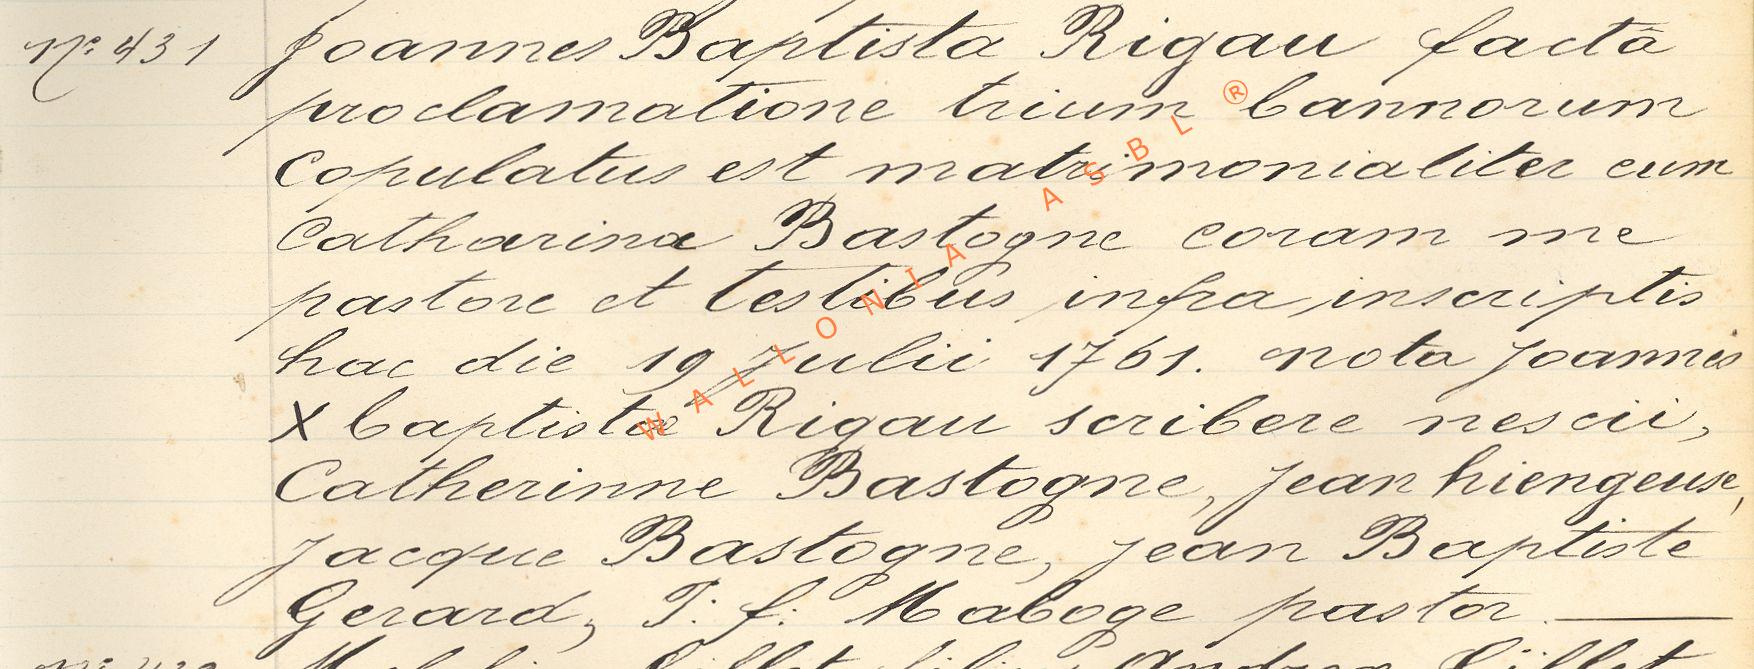 No 431 Joannes Baptista Rigau factâ
proclamatione trium bannorum
copulatus est matrimonialiter cum
Catharina Bastogne coram me
pastore et testibus infra inscriptis
hac die 19 Julii 1761. nota Joannis
X baptistæ Rigau scribere nescii,
Catherinne Bastogne, Jean hiengeuse,
Jacque Bastogne, Jean Baptiste
Gerard, T: f: Maboge pastor.
WALLONIA ASBL ®